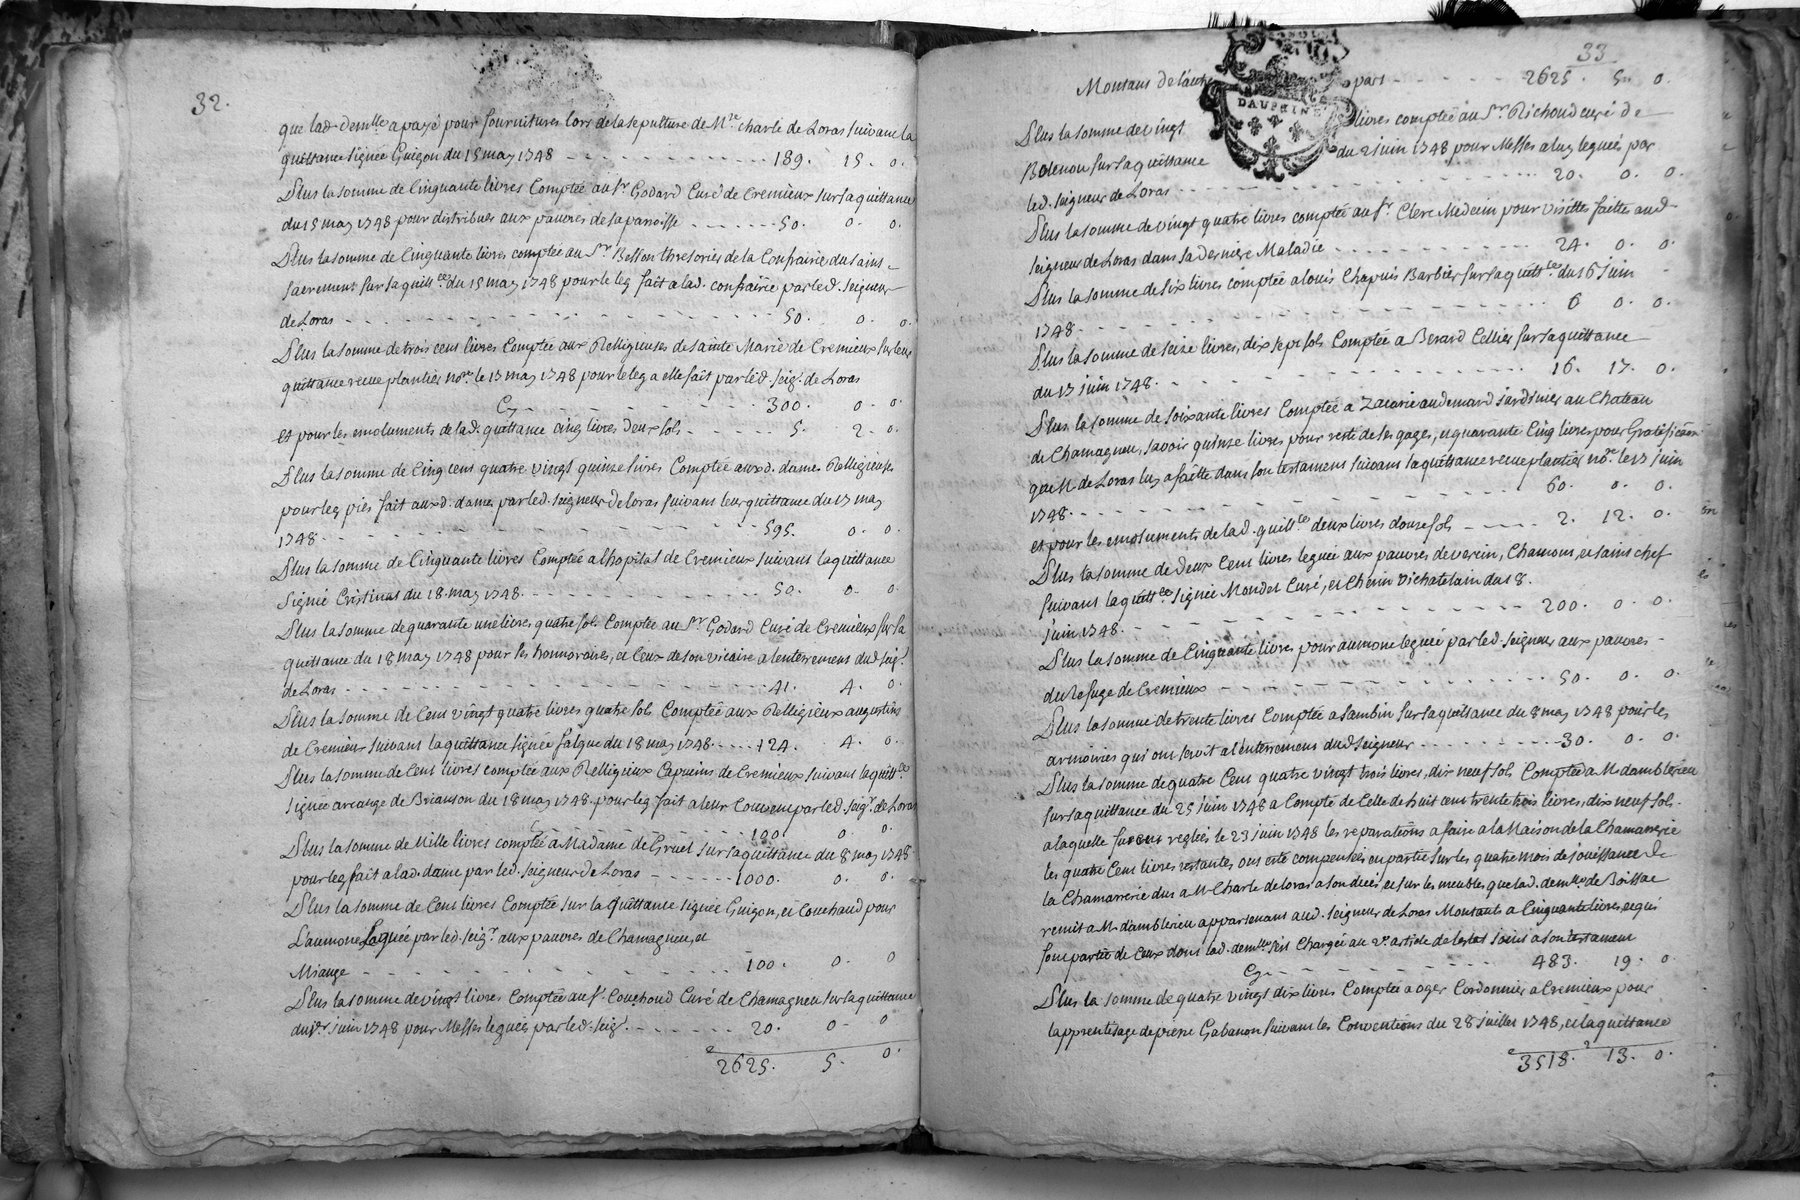 32.
que lad. demlle a payé pour fournitures lors de la sepulture de Mre charle de Loras suivant la
quittance signée Guigon du 15 may 1748 - - - - - - - - 189. 15. 0.
Plus la somme de Cinquante livres Comptée au Sr Godard Curé de Cremieux sur sa quittance
du 15 may 1748 pour distribuer aux pauvres de sa paroisse - - - - - - 50. 0. 0.
Plus la somme de Cinquante livres comptée au Sr Besson thresorier de la Confrairie du saint
sacrement sur sa quittce du 15 may 1748 pour le leg fait a lad. confrairie par led. seigneur
de Loras - - - - - - - - - - - - - - 50. 0. 0.
Plus la somme de trois cent livres Comptée aux Relligieuses de sainte Marie de Cremieux sur leur
quittance recue plantier nore le 17 may 1748 pour le leg a elle fait par led. seigr. de Loras
Cy - - - - - - - - 300. 0. 0.
et pour les emoluments de lad. quittance cinq livres deux sols - - - - - - 5. 2. 0.
Plus la somme de Cinq cent quatre vingt quinze livres Comptée auxd. dames Relligieuses
pour leg pies fait auxd. dames par led. seigneur de Loras suivant leur quittance du 17 may
1748 - - - - - - - - - - - - - - 595. 0. 0.
Plus la somme de Cinquante livres Comptée a l'hopital de Cremieux suivant la quittance
signée Cristinat du 18 may 1748 - - - - - - - - - - 50. 0. 0.
Plus la somme de quarante une livres quatre sols Comptée au Sr Godard Curé de Cremieux sur sa
quittance du 18 may 1748 pour ses honnoraires, et Ceux de son vicaire a l'enterrement dud. seigr.
de Loras - - - - - - - - - - - - - - 41. 4. 0.
Plus la somme de Cent vingt quatre livres quatre sols Comptée aux Relligieux augustins
de Cremieux suivant la quittance signée falque du 18 may 1748 - - - - 124. 4. 0.
Plus la somme de Cent livres comptée aux Relligieux Capucins de Cremieux suivant la quittce
signée arcange de Brianson du 18 may 1748 pour leg fait a leur Couvent par led. seigr. de Loras
- - - - - - - - 100. 0. 0.
Plus la somme de Mille livres comptée a Madame de Gruel sur sa quittance du 8 may 1748
pour leg fait a lad. dame par led. seigneur de Loras - - - - - - 1000. 0. 0.
Plus la somme de Cent livres Comptée sur la quittance signée Guigon, et Couchaud pour
L'aumone Leguée par led. seigr. aux pauvres de Chamagneu, et
Miange - - - - - - - - - - - - - - 100. 0. 0.
Plus la somme de vingt livres Comptée au Sr. Couchoud Curé de Chamagneu sur sa quittance
du 1er. juin 1748 pour Messes leguées par led. seigr. - - - - - - 20. 0. 0.
2625. 5. 0.
33
Montant de l'autre part - - - - - - 2625. 5. 0.
DAUPHINE
Plus la somme de vingt livres comptée au Sr. Richoud curé de
Bolenou sur sa quittance du 2 juin 1748 pour Messes a luy leguées par
led. seigneur de Loras - - - - - - - - - - 20. 0. 0.
Plus la somme de vingt quatre livres comptée au Sr. Clerc Medecin pour visittes faittes aud.
seigneur de Loras dans sa derniere Maladie - - - - - - - 24. 0. 0.
Plus la somme de six livres comptée a Louis Chapuis Barbier sur sa quittce du 16 juin
1748 - - - - - - - - - - - - - - 6 0. 0.
Plus la somme de seize livres, dix sept sols Comptée a Berard Cellier sur sa quittance
du 17 juin 1748 - - - - - - - - - - 16. 17. 0.
Plus la somme de soixante livres Comptée a Zacarie audemard jardinier au Chateau
de Chamagneu, savoir quinze livres pour reste de ses gages, et quarante Cinq livres pour Gratification
que M. de Loras luy a faitte dans son testament suivant la quittance recue plantier nore. le 17 juin
1748 - - - - - - - - - - - - - - 60. 0. 0.
et pour les emoluments de lad. quittce deux livres douse sols - - - - - 2. 12. 0.
Plus la somme de deux Cent livres leguée aux pauvres de verein, Chamont, et saint chef
suivant la quittce signée Moudet Curé, et Chenin vichatelain du 18.
juin 1748 - - - - - - - - - - - - 200. 0. 0.
Plus la somme de Cinquante livres pour aumone leguée par led. seigneur aux pauvres
du refuge de Cremieux - - - - - - - - - - 50. 0. 0.
Plus la somme de trente livres Comptée a Sambin sur sa quittance du 8 may 1748 pour les
armoiries qui ont servit a l'enterrement dud seigneur - - - - - - - 30. 0. 0.
Plus la somme de quatre Cent quatre vingt trois livres, dix neuf sols Comptée a M. damblerieu
sur sa quittance du 25 juin 1748 a Compte de Celle de huit cent trente trois livres, dix neuf sols.
a laquelle furent reglées le 23 juin 1748 les reparations a faire a la Maison de la Chamarrerie
les quatre Cent livres restantes ont esté compensées en partie sur les quatre mois de jouissance de
la Chamarrerie dus a M. Charle de Loras a son deces, et sur les meubles que lad. demlle de Boissac
remit a M. damblerieu appartenant aud. seigneur de Loras Montants a Cinquante livres, et qui
font partie de Ceux dont lad. demlle s'est Chargée au 2e. article de l'estat joint a son testament
Cy - - - - - - - - - - 483. 19. 0
Plus la somme de quatre vingt dix livres Comptée a oger Cordonnier a Cremieux pour
lapprentisage de pierre Gabanon suivant les Conventions du 28 juillet 1748, et la quittance
3518. 13. 0.